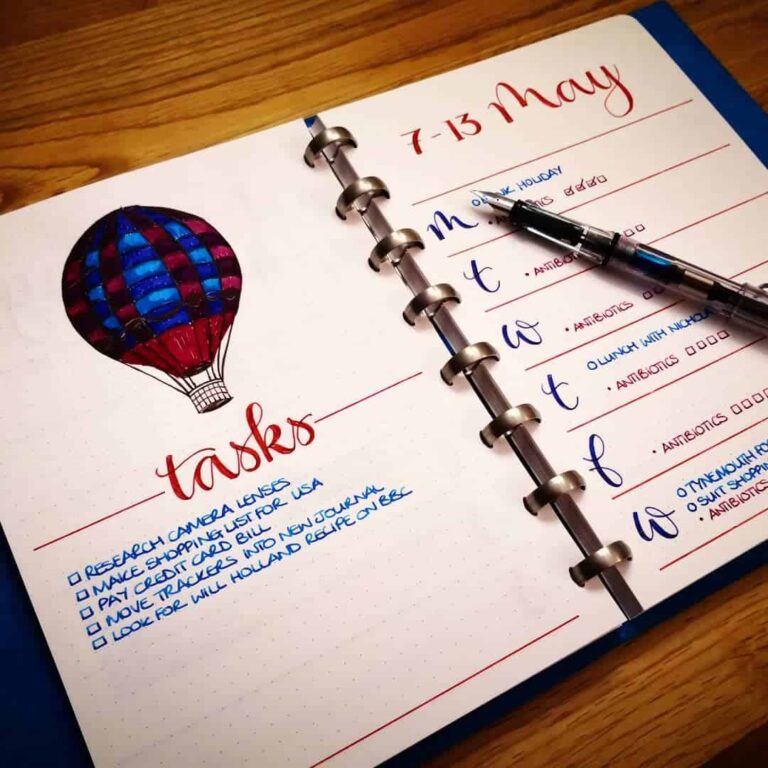 tasks
□ RESEARCH CAMERA LENSES
□ MAKE SHOPPING LIST FOR USA
□ PAY CREDIT CARD BILL
□ MOVE TRACKERS INTO NEW JOURNAL
□ LOOK FOR WILL HOLLAND RECIPE ON BBC
7-13 May
HOLIDAY
m
t
w • ANTIBIOTICS
O LUNCH WITH
t • ANTIBIOTICS □□□□
f • ANTIBIOTICS
O TYNEMOUTH
w O SUIT
• ANTIBIOTICS